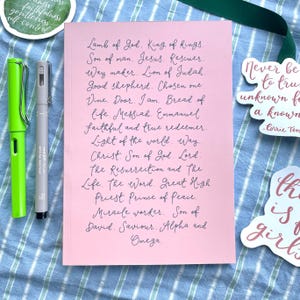 Lamb of God. King of kings.
Son of man. Jesus. Rescuer.
Way maker. Lion of Judah.
Good shepherd. Chosen one
Vine. Door. I am. Bread of
life. Messiah. Emmanuel
Faithful and true redeemer.
Light of the world. Way
Christ. Son of God. Lord.
The Resurrection and The
Life. The Word. Great High
Priest. Prince of Peace.
Miracle worker. Son of
David. Saviour. Alpha and
Omega.
Never be
to tru
unknown f
a known
- Corrie Ten
th
is f
girls